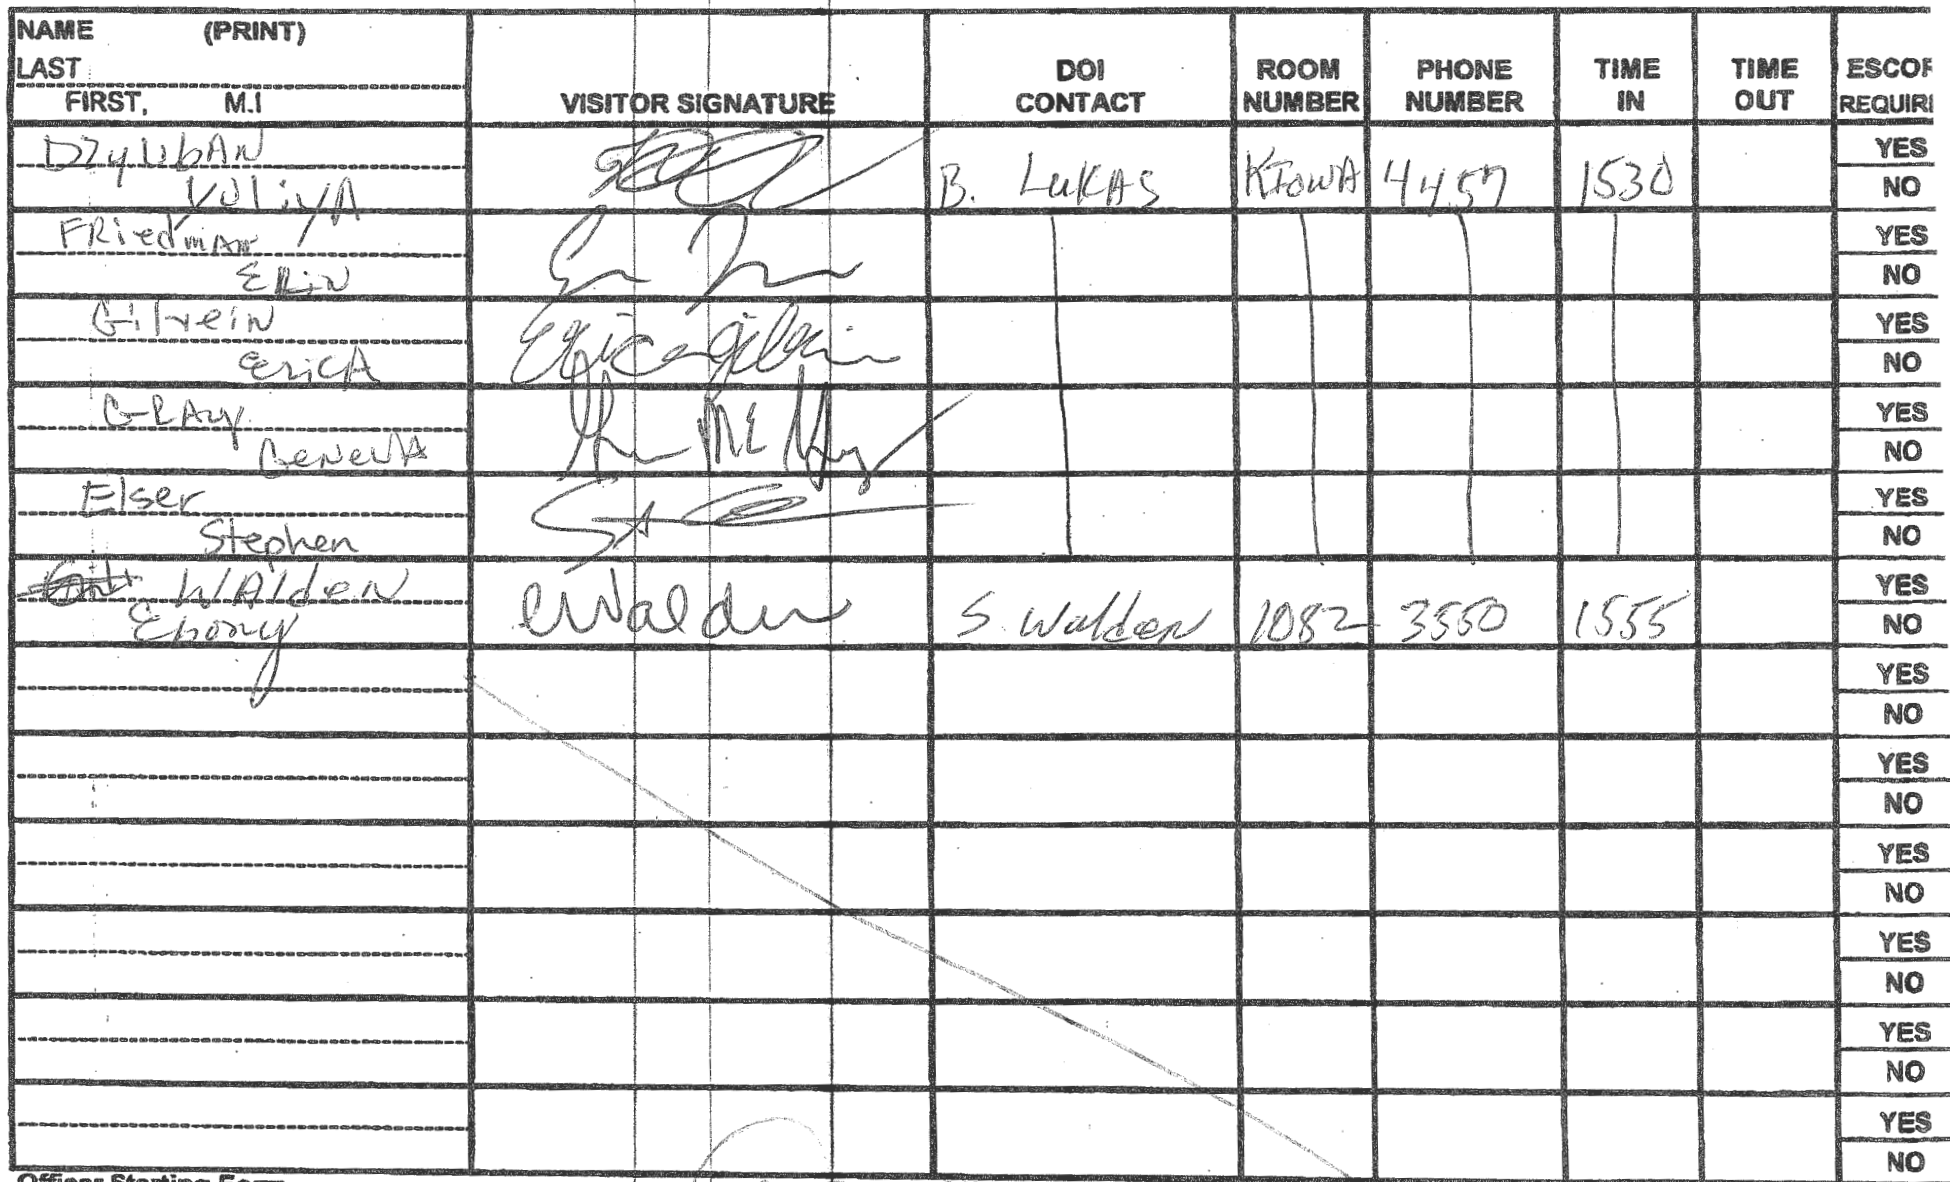 NAME (PRINT)
LAST
FIRST, M.I
VISITOR SIGNATURE
DOI
CONTACT
ROOM
NUMBER
PHONE
NUMBER
TIME
IN
TIME
OUT
ESCOR
REQUIRI
DzyubAN
B. LuKAS KIowA 4457 1530
YES
NO
FRiedmAn
ERiN
YES
NO
Gilrein
EricA Erica Gilrein
YES
NO
GRAy
GenevA
YES
NO
Elser
Stephen
YES
NO
WAlden
Ebony eWalden S. Walden 1082 3550 1555
YES
NO
YES
NO
YES
NO
YES
NO
YES
NO
YES
NO
YES
NO